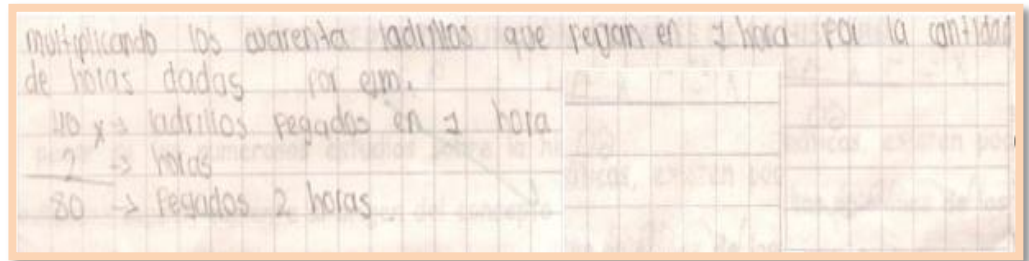 multiplicando los cuarenta ladrillos que pegan en 1 hora por la cantidad
de horas dadas por ejm.
40 x → ladrillos pegados en 1 hora
2 → horas
80 → Pegados 2 horas